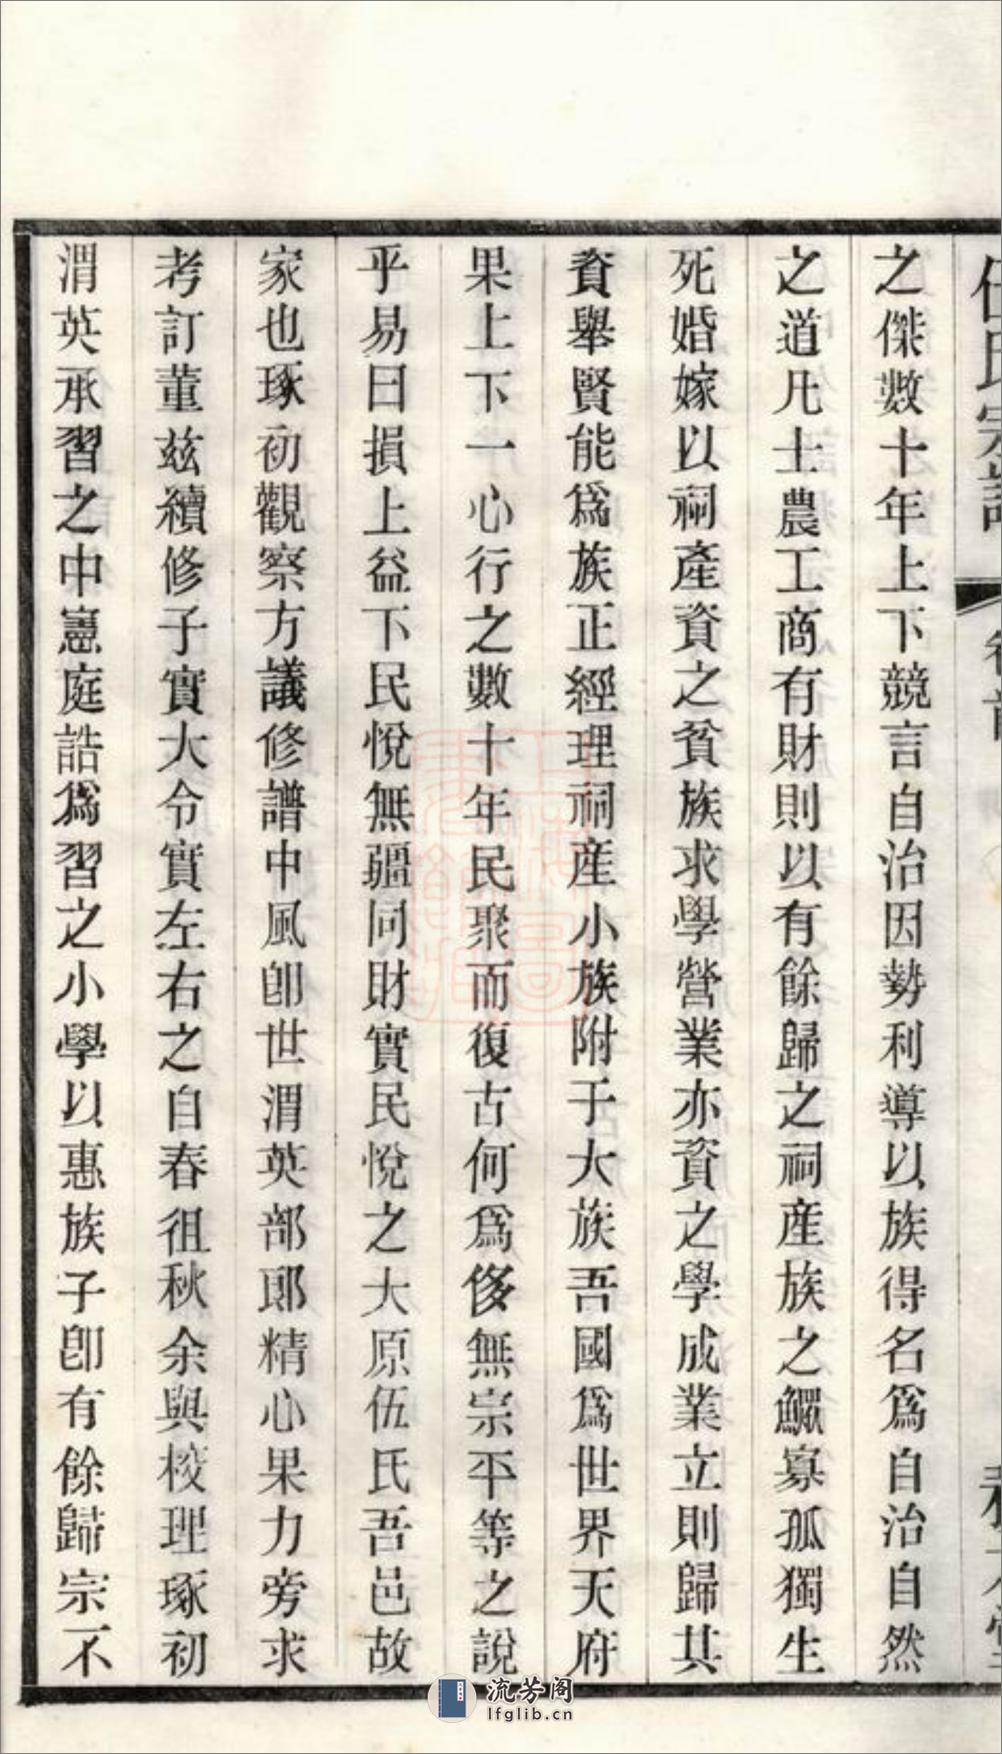 伍氏宗譜
之傑數十年上下競言自治因勢利導以族得名爲自治自然
之道凡士農工商有財則以有餘歸之祠產族之鰥寡孤獨生
死婚嫁以祠產資之貧族求學營業亦資之學成業立則歸其
資舉賢能爲族正經理祠產小族附于大族吾國爲世界天府
果上下一心行之數十年民聚而復古何爲侈無宗平等之說
乎易曰損上益下民悅無疆同財實民悅之大原伍氏吾邑故
家也琢初觀察方議修譜中風卽世渭英部郞精心果力旁求
考訂董玆續修子實大令實左右之自春徂秋余與校理琢初
渭英承習之中憲庭誥爲習之小學以惠族子卽有餘歸宗不
流芳阁
lfglib.cn